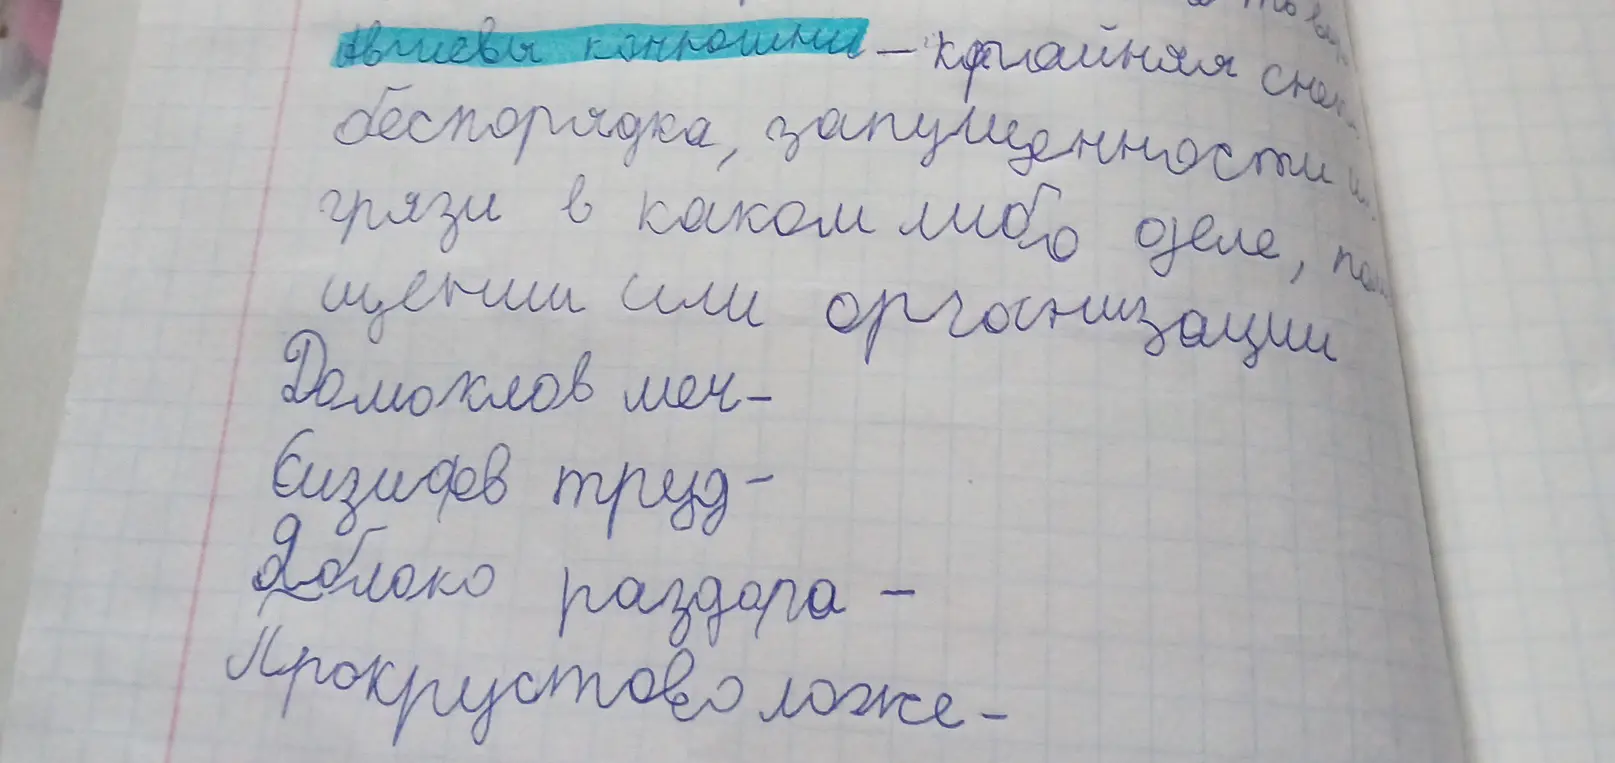 Авгиевы конюшни – крайняя степ
беспорядка, запущенности и
грязи в каком либо деле, пом
щении или организации
Домоклов меч-
Сизифов труд-
Яблоко раздора -
Прокрустово ложе-